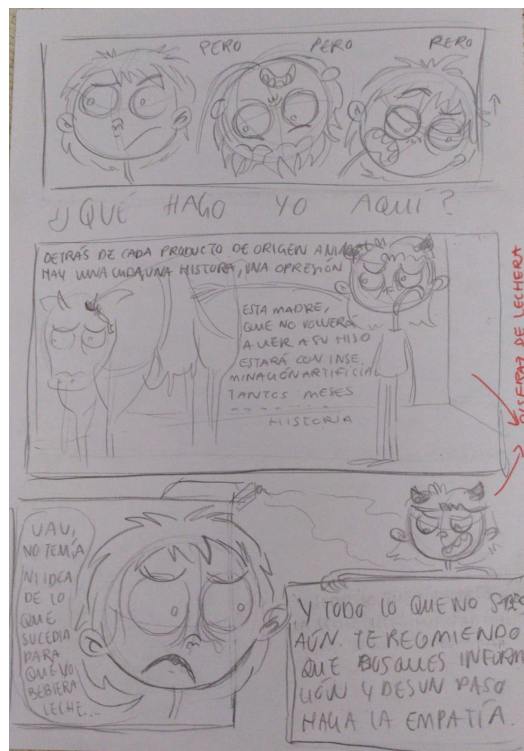 PERO PERO PERO
¿¿QUÉ HAGO YO AQUÍ?
DETRÁS DE CADA PRODUCTO DE ORIGEN ANIMAL
HAY UNA VIDA, UNA HISTORA, UNA OPRESIÓN
ESTA MADRE,
QUE NO VOLVERÁ
A VER A SU HIJO
ESTARÁ CON INSE
MINACIÓN ARTIFICIAL
TANTOS MESES
HISTORIA
DISFRAZ DE LECHERA
UAU,
NO TENÍA
NI IDEA
DE LO
QUE
SUCEDIA
PARA
QUE YO
BEBIERA
LECHE...
Y TODO LO QUE NO SABES
AÚN. TE RECOMIENDO
QUE BUSQUES INFORMA
CIÓN Y DES UN PASO
HACIA LA EMPATÍA.